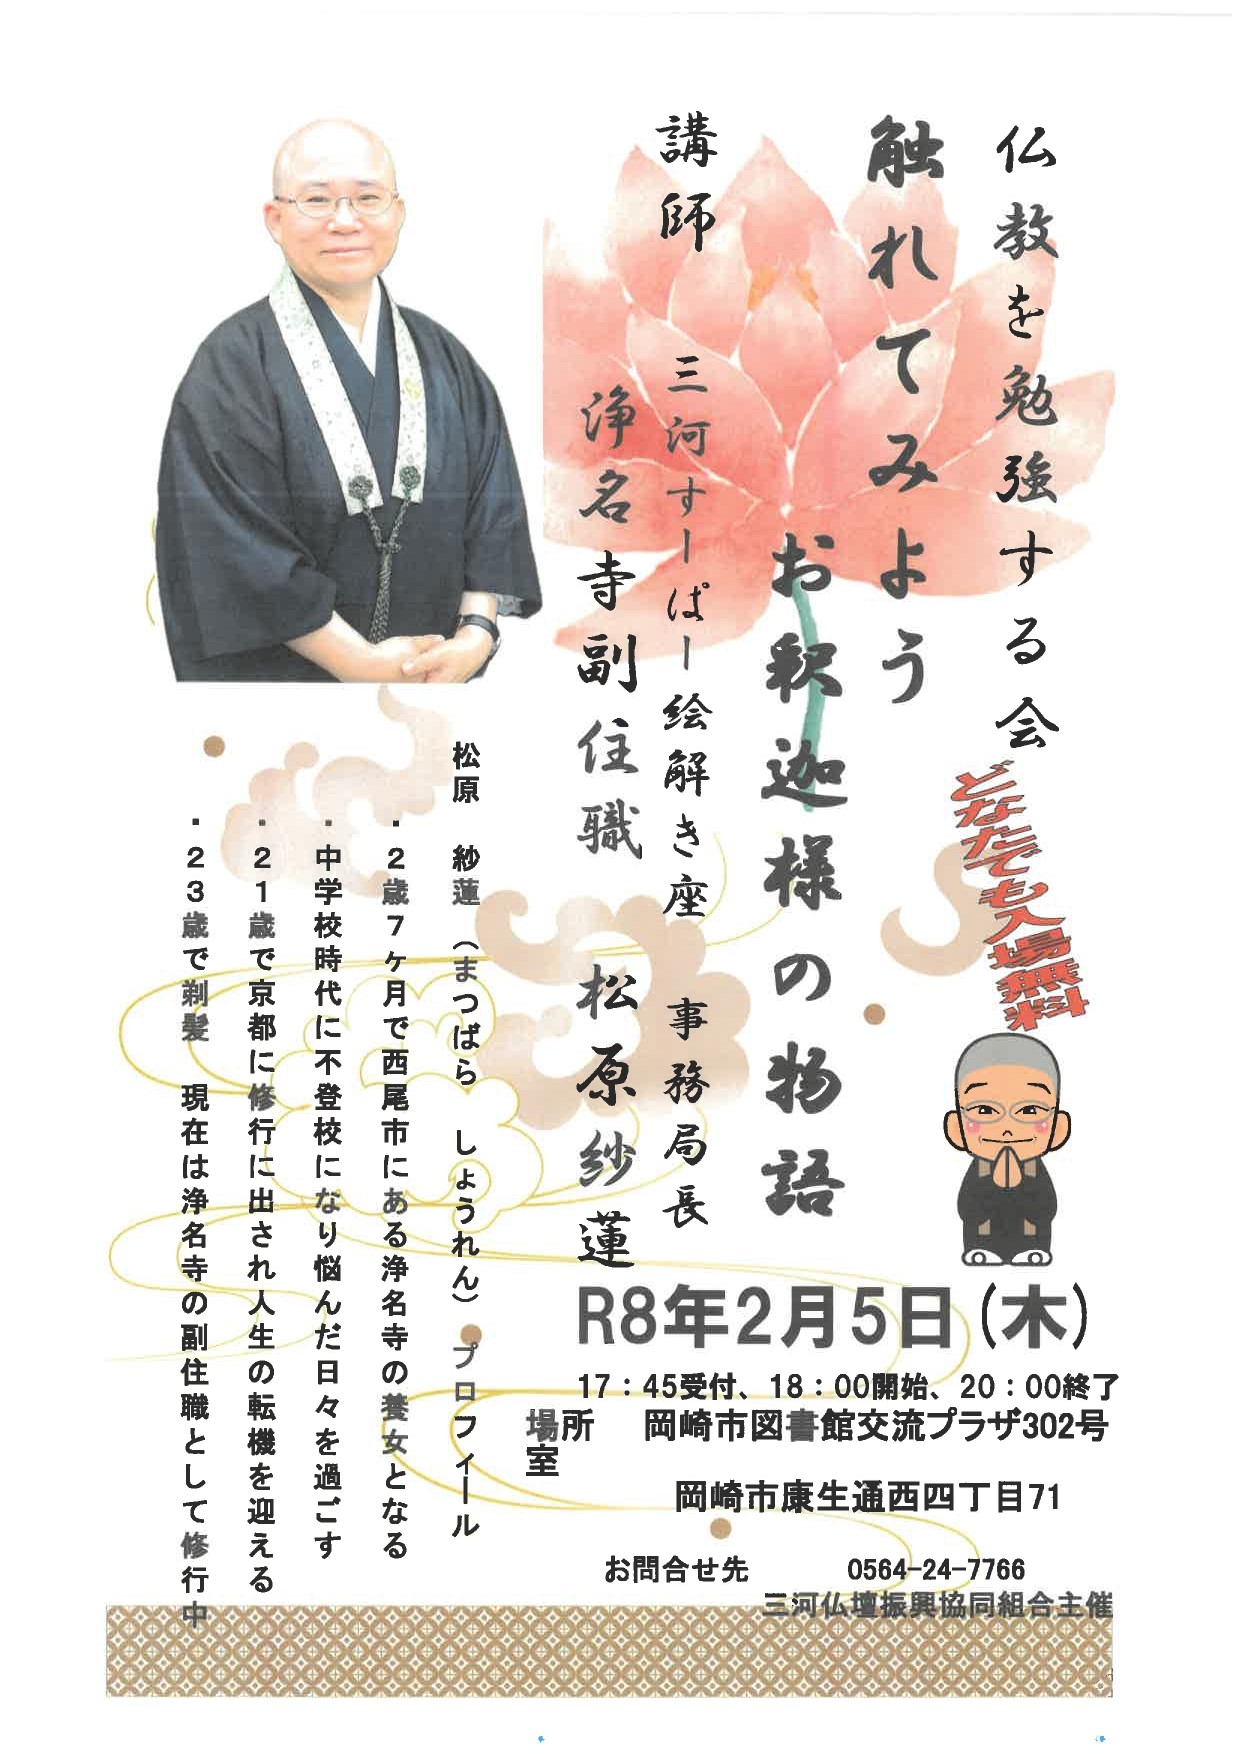 仏教を勉強する会
触れてみよう
お釈迦様の物語
どなたでも入場無料
講師　三河すーぱー絵解き座　事務局長
浄名寺副住職　松原紗蓮
松原　紗蓮（まつばら　しょうれん）プロフィール
・２歳７ヶ月で西尾市にある浄名寺の養女となる
・中学校時代に不登校になり悩んだ日々を過ごす
・２１歳で京都に修行に出され人生の転機を迎える
・２３歳で剃髪　現在は浄名寺の副住職として修行中
R8年2月5日(木)
17：45受付、18：00開始、20：00終了
場所　岡崎市図書館交流プラザ302号
室
岡崎市康生通西四丁目71
お問合せ先　0564-24-7766
三河仏壇振興協同組合主催